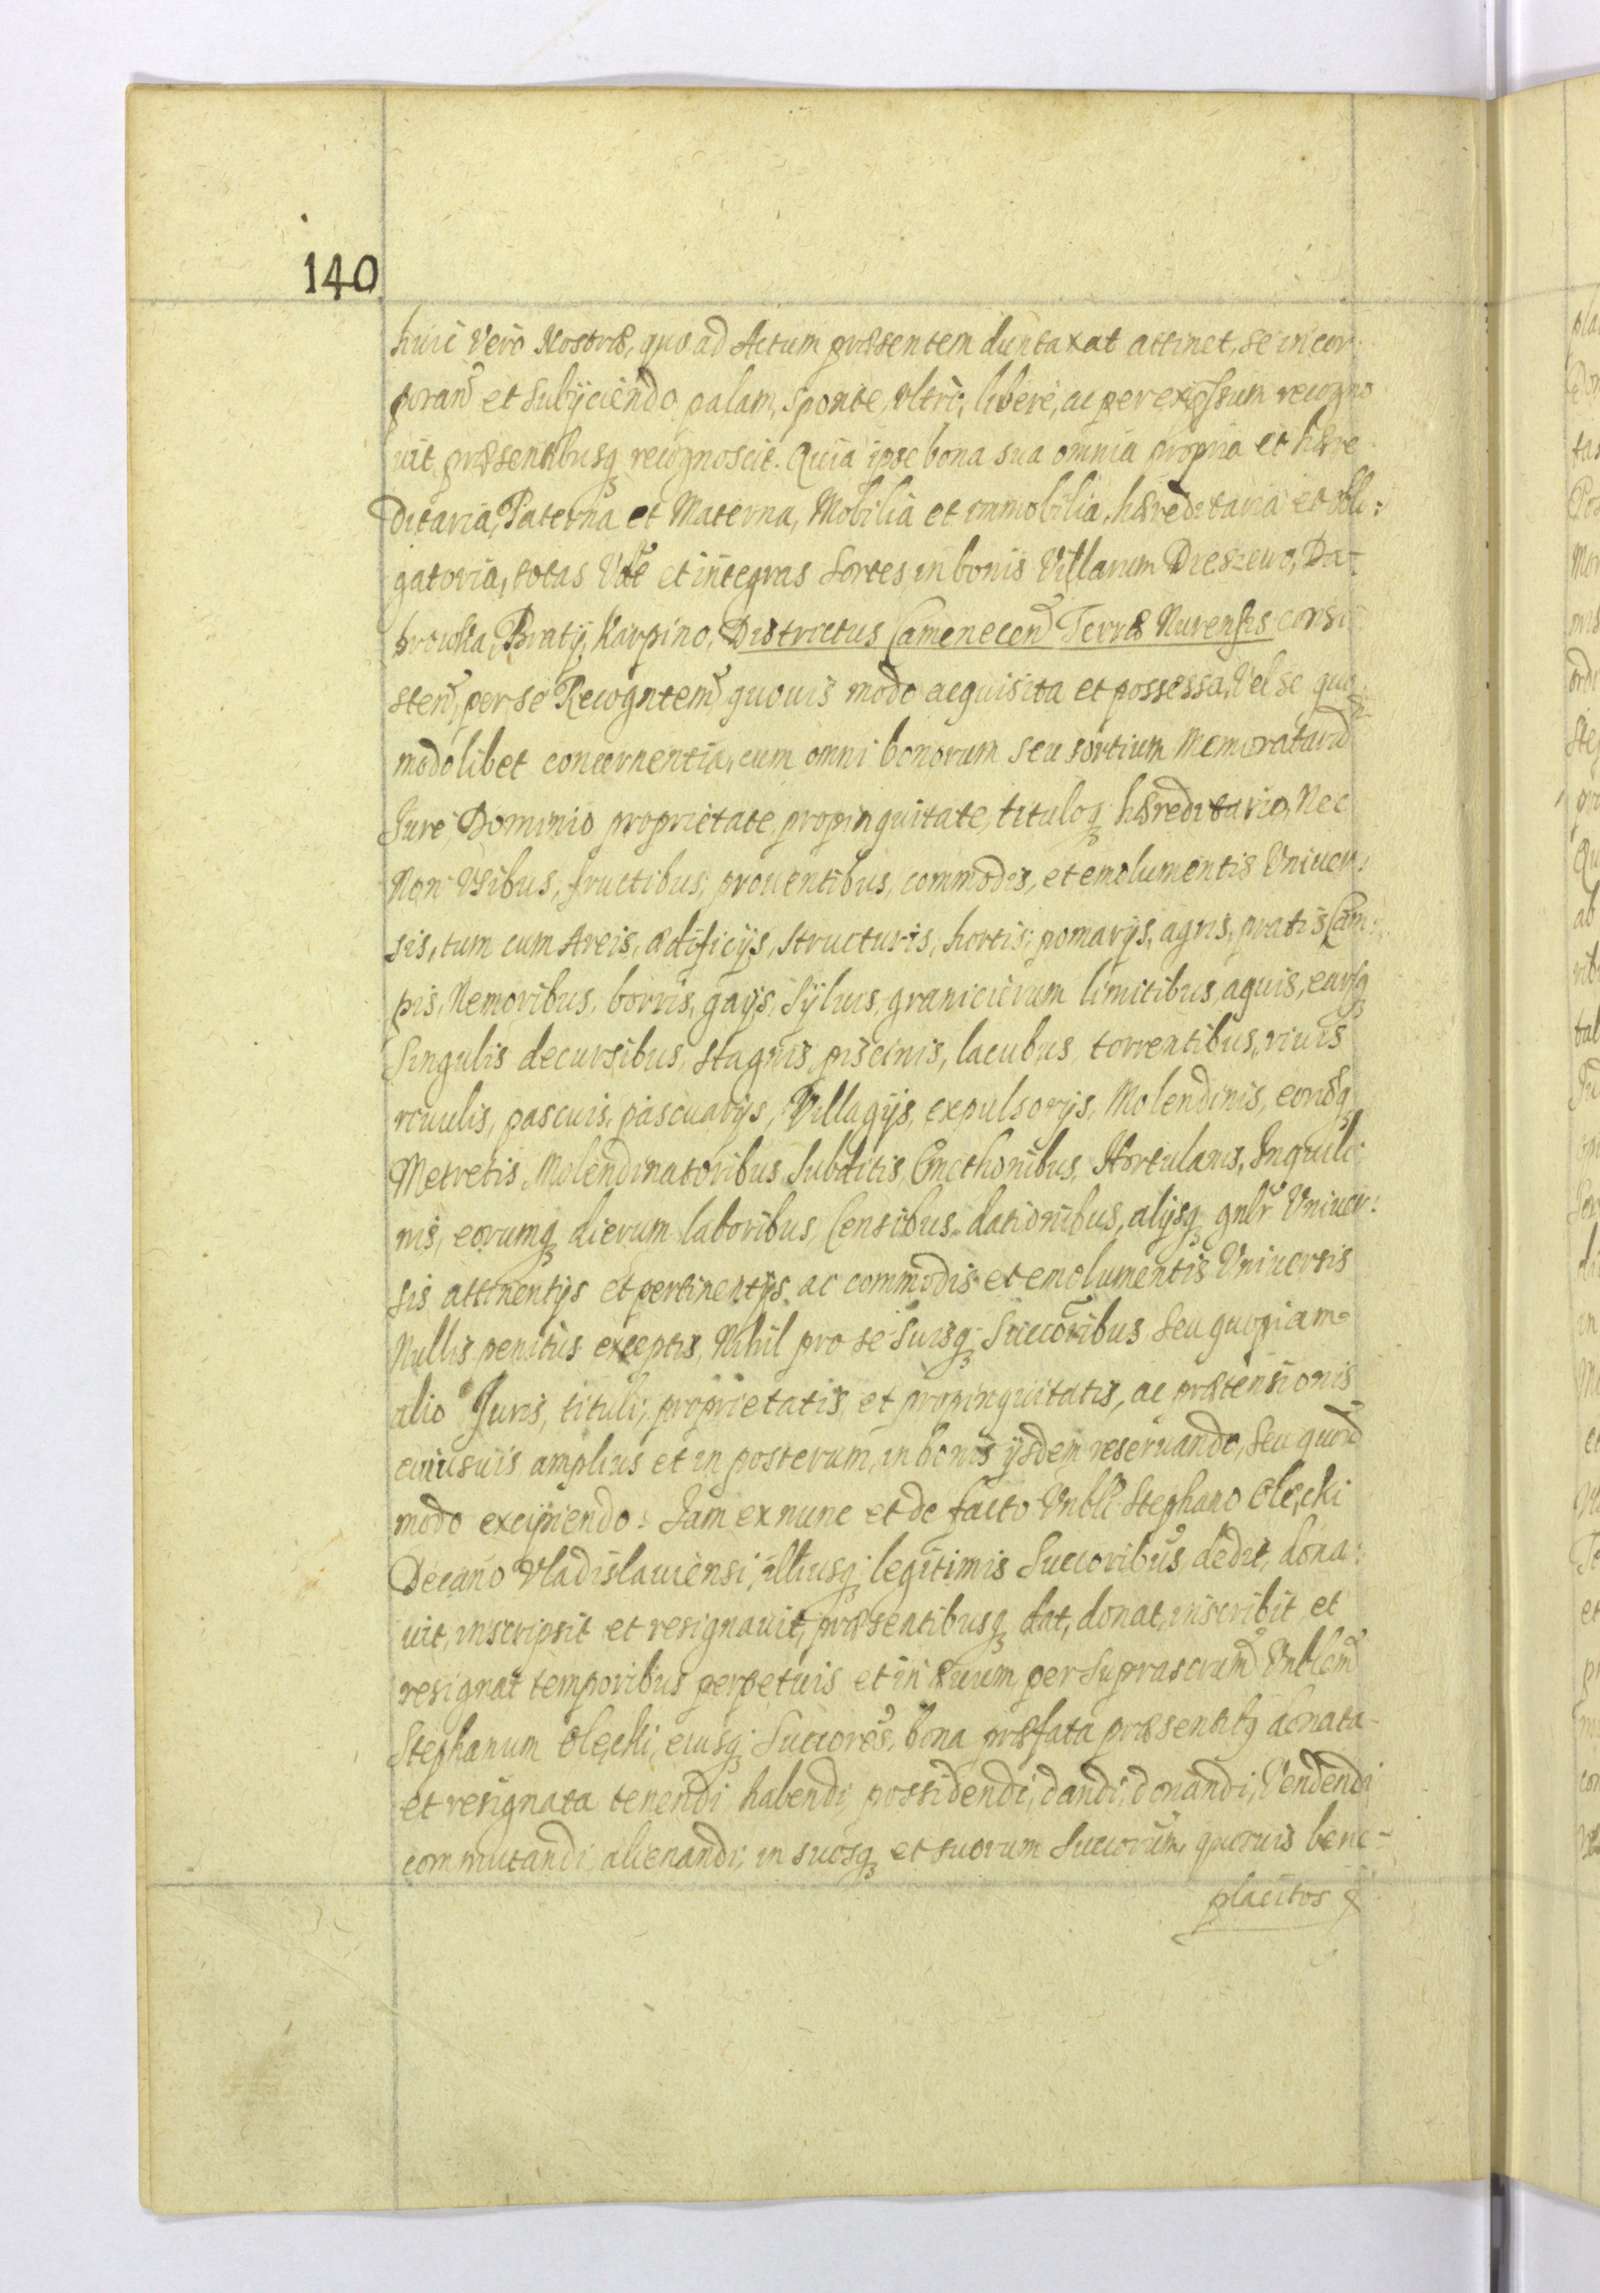 140
huic Vero Nostræ, quo ad Actum præsentem duntaxat attinet, se incor
porand et subÿciendo, palam, sponte, ultrò, liberè, ac per expssum recogno
uit, præsentibusq recognoscit. Quia ipse bona sua omnia propria et hære
ditaria, Paterna et Materna, Mobilia et immobilia, hæreditaria et obli:
gatoria, totas Vdt et integras Sortes in bonis Villarum Dreszewo, Da-
browka, Bratÿ, Karpino, Districtus Camenecen Terræ Nurensis consi
sten, per se Recogntem quouis modo acquisita et possessa, Vel se quo
modolibet concernentia, cum omni bonorum seu sortium Memoratard
Jure Dominio proprietate, propinquitate, tituloq hæreditario, Nec
Non Vsibus, fructibus, prouentibus, commodis, et emolumentis Vniuer:
sis, tum cum Areis, ædificÿs, structuris, hortis, pomarÿs, agris, pratis Cam:
pis, Nemoribus, borris, gaÿs, Sÿluis, granicierum limitibus, aquis, earsq
Singulis decursibus, stagnis, piscinis, lacubus, torrentibus, riuis
riuulis, pascuis, pascuarÿs, Villagÿs, expulsorÿs, Molendinis, eordq
Metretis, Molendinatoribus, Subditis, Cmethonibus, Hortulanis, Inquili
nis, eorumq dierum laboribus, Censibus, dationibus, alÿsq gnlr Vniuer:
sis attinentÿs et pertinentÿs, ac commodis et emolumentis Vniuersis
Nullis penitùs exceptis, Nihil pro se suisq Succoribus seu quopiam
alio Juris, tituli, proprietatis, et propinquitatis, ac prætensionis
cuiusuis amplius et in posterum, in bonis ÿsdem reseruando, seu quod
modo excipiendo: Jam ex nunc et de facto Vnbli Stephano Olecki
Decano Vladislauiensi, illiusq legitimis Succoribus dedit, dona:
uit, inscripsit et resignauit, præsentibusq dat, donat, inscribit, et
resignat temporibus perpetuis et in æuum per suprascrum Vnblem
Stephanum Olecki, eiusq Succores, bona præfata præsentibq donata
et resignata tenendi, habendi, possidendi, dandi, donandi, Vendendi
commutandi, alienandi, in suosq et suorum Succorum, quosuis bene-
placitos